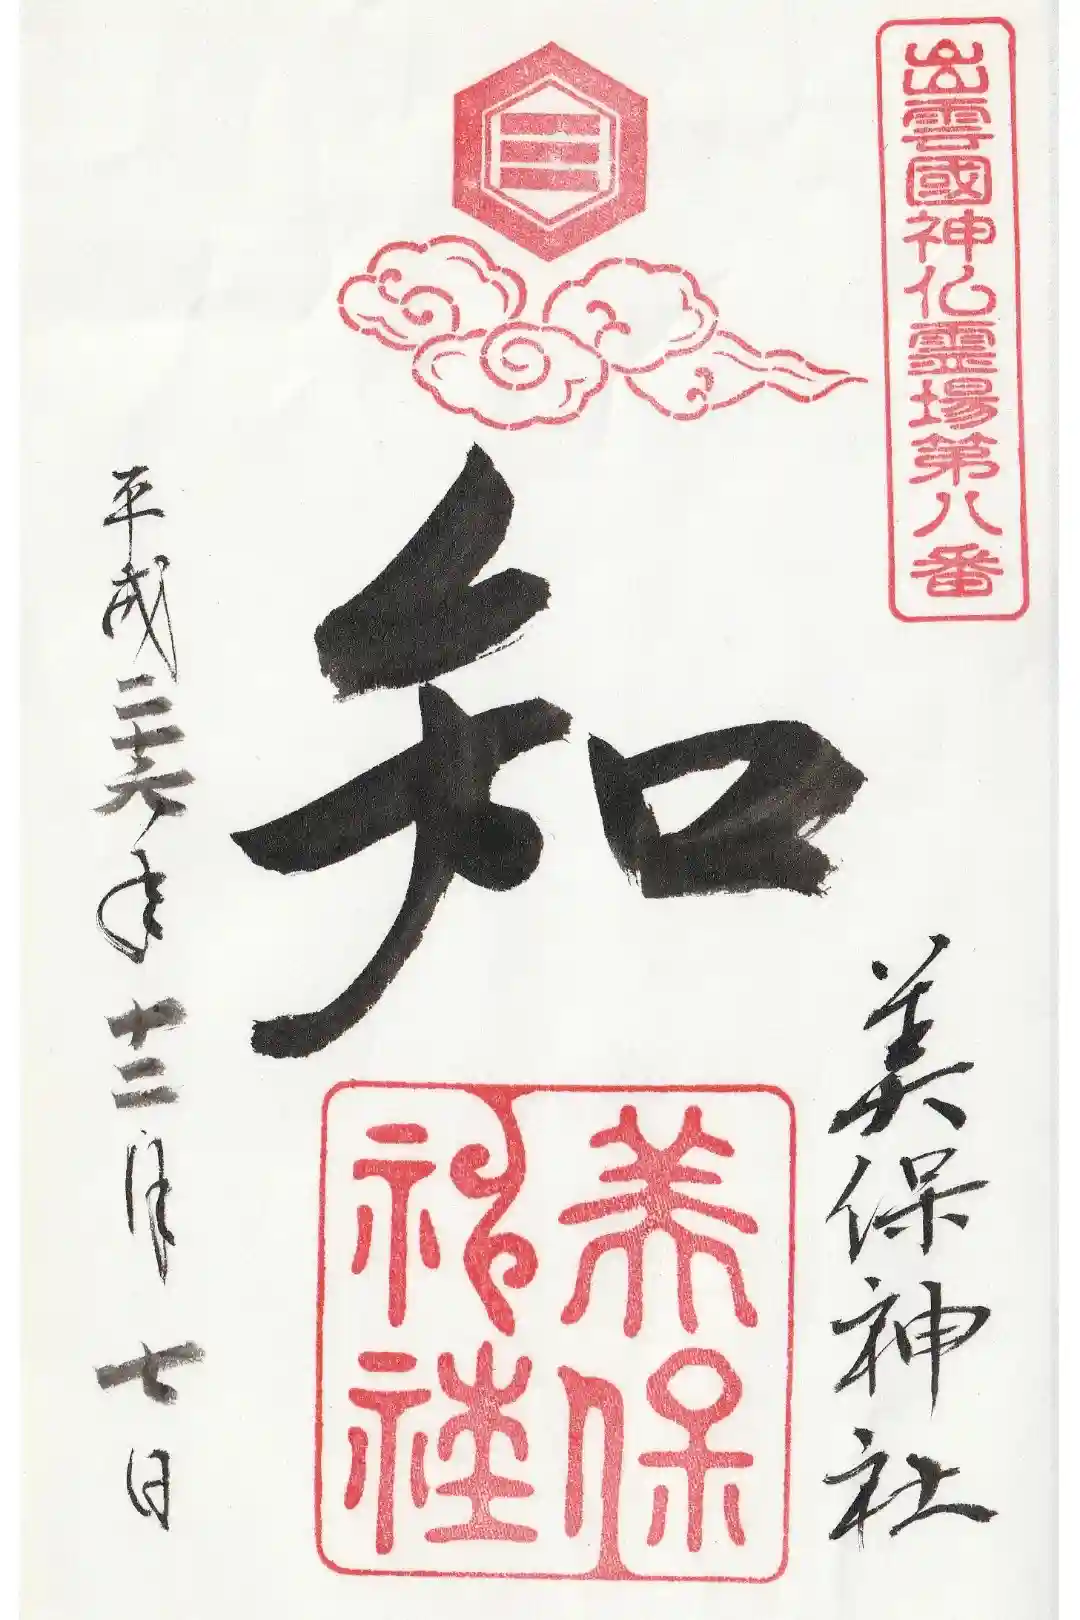 出雲國神仏霊場第八番
美保神社
和
美保
神社
平成二十六年
十二月
七日